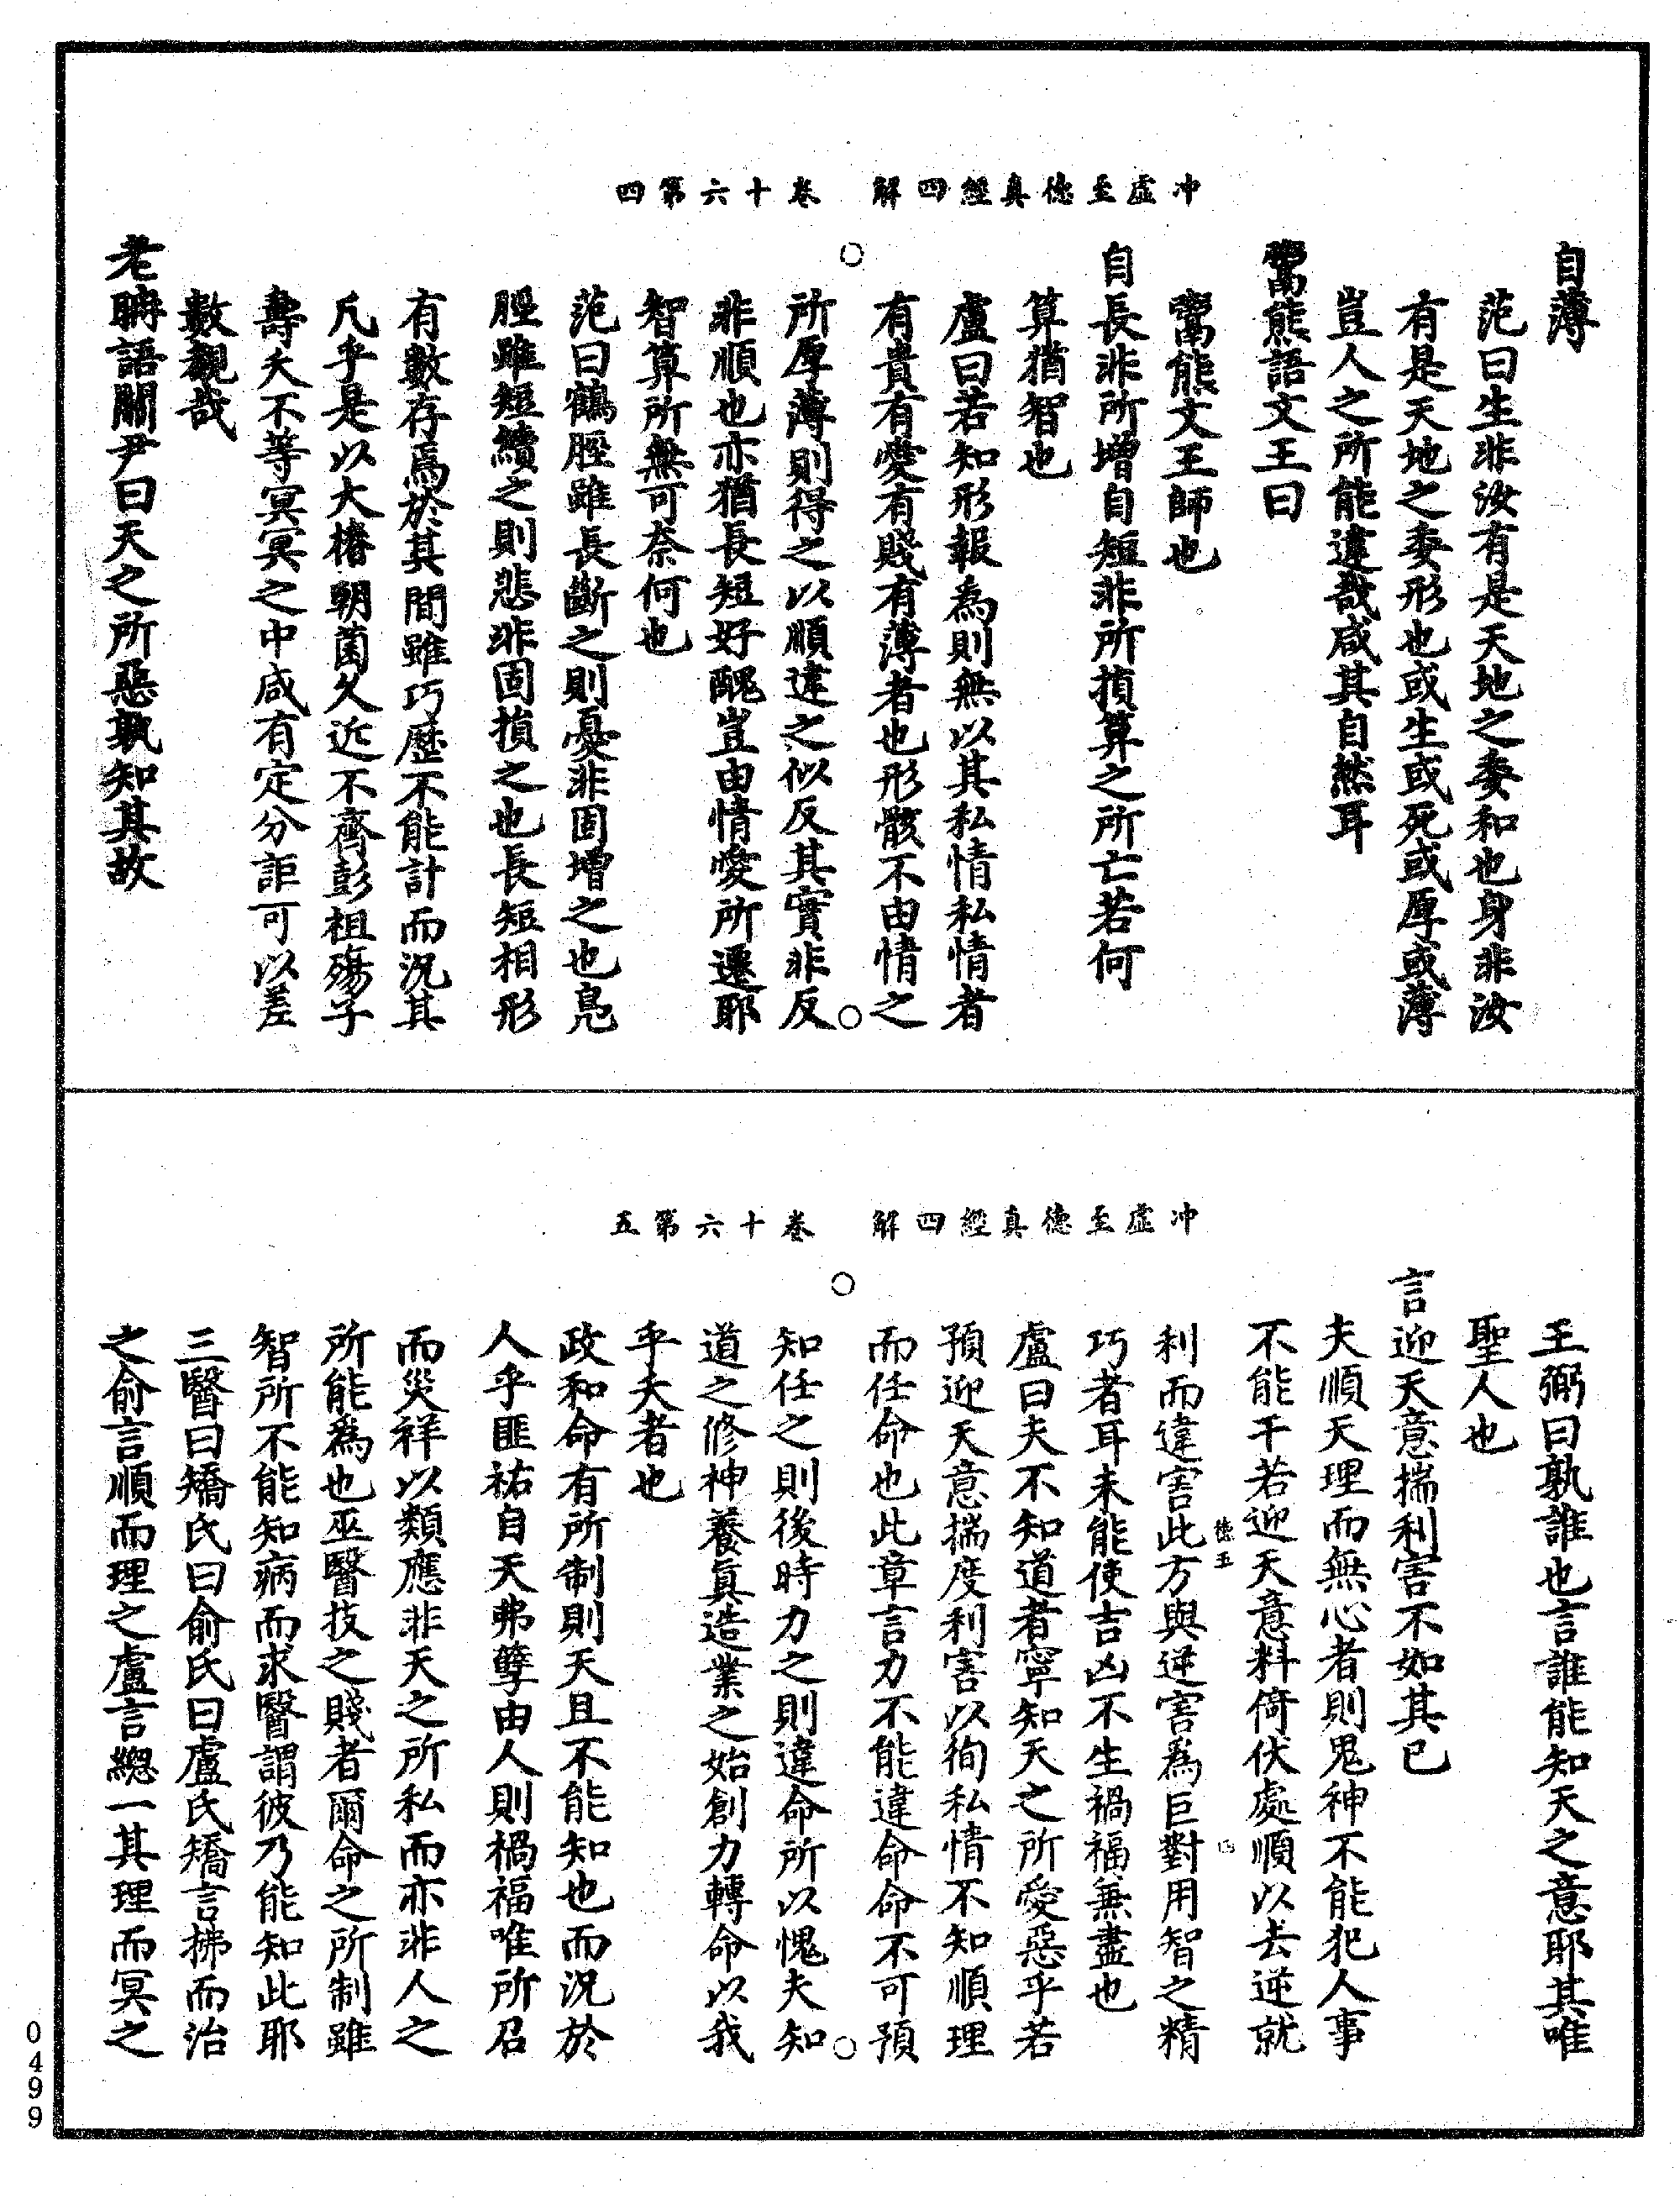 冲虛至德真經四解　卷十六第四
自薄
范曰生非汝有是天地之委和也身非汝
有是天地之委形也或生或死或厚或薄
豈人之所能違哉咸其自然耳
鬻熊語文王曰
鬻熊文王師也
自長非所增自短非所損算之所亡若何
算猶智也
盧曰若知形報為則無以其私情私情者
有貴有愛有賤有薄者也形骸不由情之
所厚薄則得之以順違之似反其實非反
非順也亦猶長短好醜豈由情愛所遷耶
智算所無可奈何也
范曰鶴脛雖長斷之則憂非固增之也鳧
脛雖短續之則悲非固損之也長短相形
有數存焉於其間雖巧歷不能計而況其
凡乎是以大椿朝菌久近不齊彭祖殤子
壽夭不等冥冥之中咸有定分詎可以差
數觀哉
老聃語關尹曰天之所惡孰知其故
冲虛至德真經四解　卷十六第五
王弼曰孰誰也言誰能知天之意耶其唯
聖人也
言迎天意揣利害不如其已
夫順天理而無心者則鬼神不能犯人事
不能干若迎天意料倚伏處順以去逆就
利而違害此方與逆害為巨對用智之精
德玉
巧者耳未能使吉凶不生禍福兼盡也
盧曰夫不知道者寧知天之所愛惡乎若
預迎天意揣度利害以徇私情不知順理
而任命也此章言力不能違命命不可預
知任之則後時力之則違命所以愧夫知
道之修神養真造業之始創力轉命以我
乎夭者也
政和命有所制則天且不能知也而況於
人乎匪祐自天弗孽由人則禍福唯所召
而災祥以類應非天之所私而亦非人之
所能為也巫醫技之賤者爾命之所制雖
智所不能知病而求醫謂彼乃能知此耶
三醫曰矯氏曰俞氏曰盧氏矯言拂而治
之俞言順而理之盧言總一其理而冥之
0499